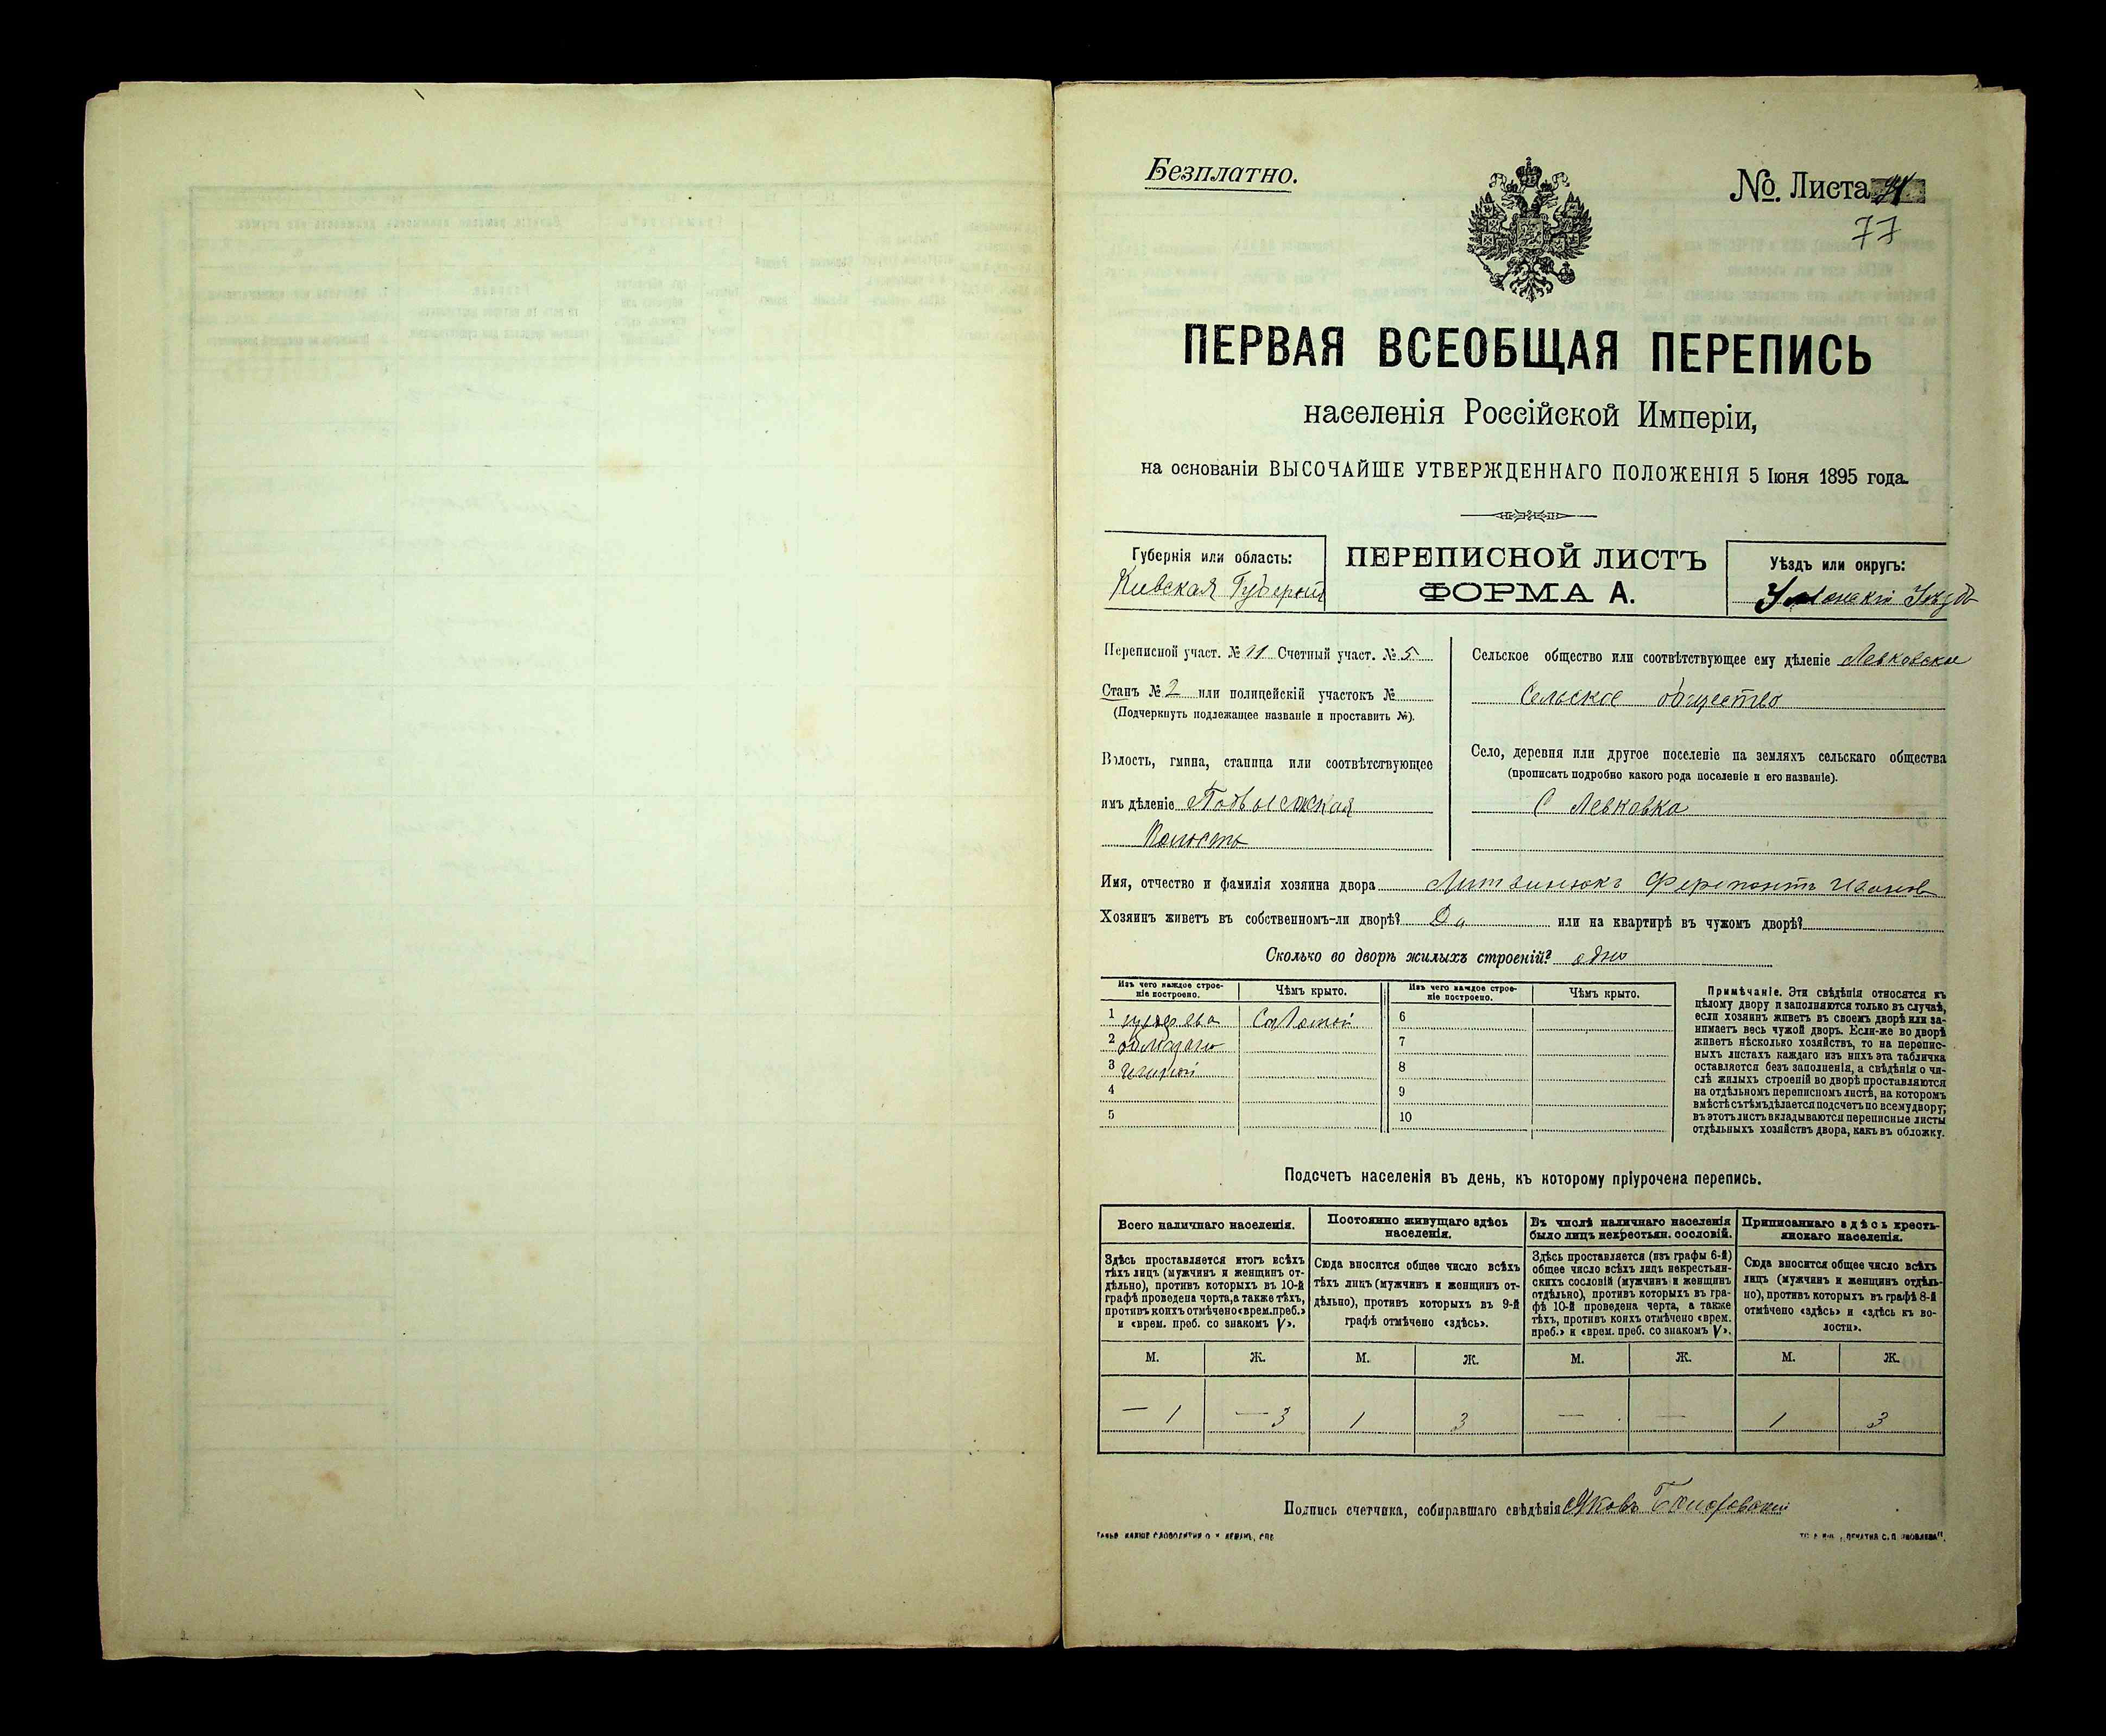 Безплатно.
№ Листа
77
ПЕРВАЯ ВСЕОБЩАЯ ПЕРЕПИСЬ
населенія Россійской Имперіи,
на основаніи ВЫСОЧАЙШЕ УТВЕРЖДЕННАГО ПОЛОЖЕНІЯ 5 Іюня 1895 года.
Губернія или область:
Киевская Губерния
ПЕРЕПИСНОЙ ЛИСТЪ
ФОРМА А.
Уѣздъ или округъ:
Уманскій Уѣздъ
Переписной участ. № 11 Счетный участ. № 5
Станъ № 2 или полицейскій участокъ №
(Подчеркнуть подлежащее названіе и проставить №).
Волость, гмина, станица или соотвѣтствующее
имъ дѣленіе Подвысоцкая
Волость
Сельское общество или соотвѣтствующее ему дѣленіе Левковское
Сельское общество
Село, деревня или другое поселеніе на земляхъ сельскаго общества
(прописать подробно какого рода поселеніе и его названіе).
С Левковка
Имя, отчество и фамилія хозяина двора Литвинюкъ Ферапонтъ Иванов
Хозяинъ живетъ въ собственномъ-ли дворѣ? Да или на квартирѣ въ чужомъ дворѣ?
Сколько во дворѣ жилыхъ строеній? одно
Изъ чего каждое строе-
ніе построено.
Чѣмъ крыто.
Изъ чего каждое строе-
ніе построено.
Чѣмъ крыто.
1 Соломой 6
2 7
3 глиной 8
4 9
5 10
Примѣчаніе. Эти свѣдѣнія относятся къ
цѣлому двору и заполняются только въ случаѣ,
если хозяинъ живетъ въ своемъ дворѣ или за-
нимаетъ весь чужой дворъ. Если-же во дворѣ
живетъ нѣсколько хозяйствъ, то на перепис-
ныхъ листахъ каждаго изъ нихъ эта табличка
оставляется безъ заполненія, а свѣдѣнія о чи-
слѣ жилыхъ строеній во дворѣ проставляются
на отдѣльномъ переписномъ листѣ, на которомъ
вмѣстѣ съ тѣмъ дѣлается подсчетъ по всему двору;
въ этотъ листъ вкладываются переписные листы
отдѣльныхъ хозяйствъ двора, какъ въ обложку.
Подсчетъ населенія въ день, къ которому пріурочена перепись.
Всего наличнаго населенія.
Здѣсь проставляется итогъ всѣхъ
тѣхъ лицъ (мужчинъ и женщинъ от-
дѣльно), противъ которыхъ въ 10-й
графѣ проведена черта, а также тѣхъ,
противъ коихъ отмѣчено «врем. преб.»
и «врем. преб. со знакомъ V».
Постоянно живущаго здѣсь
населенія.
Сюда вносится общее число всѣхъ
тѣхъ лицъ (мужчинъ и женщинъ от-
дѣльно), противъ которыхъ въ 9-й
графѣ отмѣчено «здѣсь».
Въ числѣ наличнаго населенія
было лицъ некрестьян. сословій.
Здѣсь проставляется (изъ графы 6-й)
общее число всѣхъ лицъ некрестьян-
скихъ сословій (мужчинъ и женщинъ
отдѣльно), противъ которыхъ въ гра-
фѣ 10-й проведена черта, а также
тѣхъ, противъ коихъ отмѣчено «врем.
преб.» и «врем. преб. со знакомъ V».
Приписаннаго здѣсь кресть-
янскаго населенія.
Сюда вносится общее число всѣхъ
лицъ (мужчинъ и женщинъ отдѣль-
но), противъ которыхъ въ графѣ 8-й
отмѣчено «здѣсь» и «здѣсь къ во-
лости».
М. Ж. М. Ж. М. Ж. М. Ж.
— 1 — 3 1 3 — — 1 3
Подпись счетчика, собиравшаго свѣдѣнія Яковъ